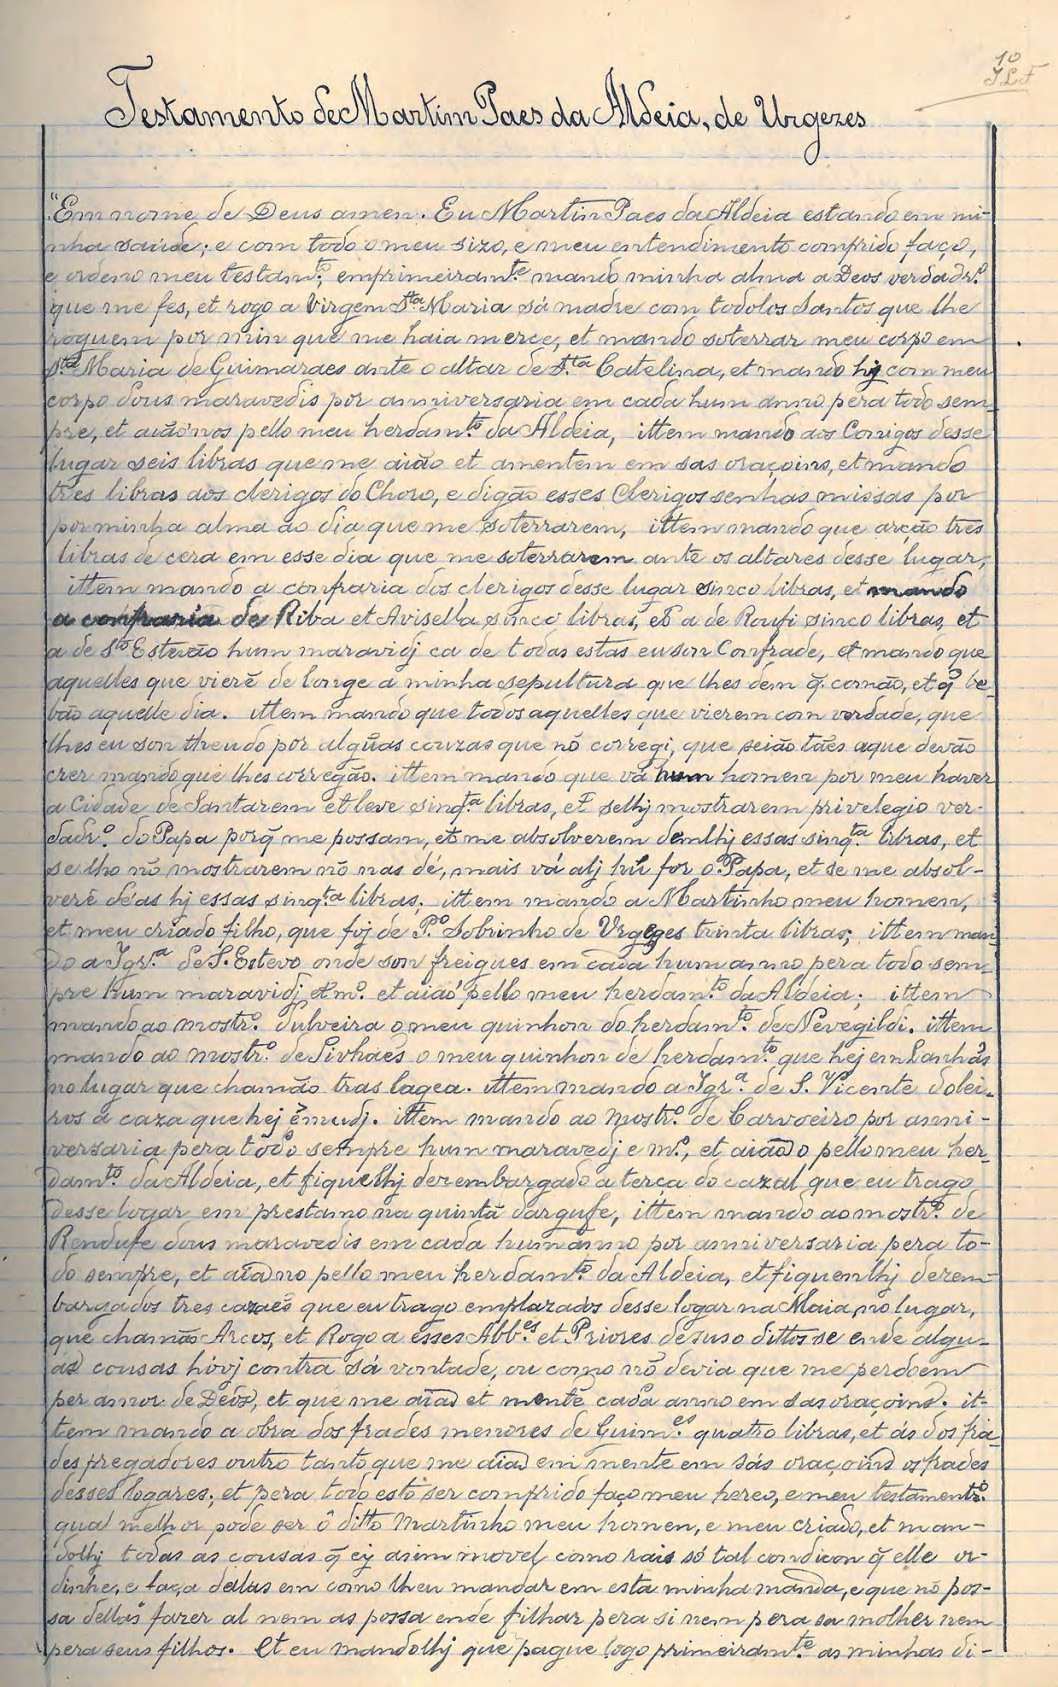 10
JLF
Testamento de Martim Paes da Aldeia, de Urgezes
"Em nome de Deus amen. Eu Martim Paes da Aldeia estando em mi-
nha saude; e com todo o meu sizo, e meu entendimento comprido faço,
e ordeno meu testamto; emprimeiramte mando minha alma a Deos verdadro
que me fes, et rogo a Virgem Sta Maria sá madre com todolos Santos que lhe
roguem por mim que me haia merce, et mando soterrar meu corpo em
Sta Maria de Guimaraes ante o altar de Sta Catelina, et mando hj com meu
corpo dous maravedis por anniversaria em cada hum anno pera todo sem-
pre, et aiãonos pello meu herdamto da Aldeia, ittem mando aos Conigos desse
lugar seis libras que me aião et amentem em sas oraçoins, et mando
tres libras aos clerigos do Choro, e digão esses Clerigos senhas missas por
por minha alma ao dia que me soterrarem, ittem mando que arção tres
libras de cera em esse dia que me soterrarem ante os altares desse lugar,
ittem mando a confraria dos clerigos desse lugar sinco libras, et mando
a confraria de Riba et Avisella sinco libras, et a de Roufi sinco libras, et
a de Sto Estevão hum maravidj ca de todas estas eu son Confrade, et mando que
aquelles que vierẽ de longe a minha sepultura que lhes dem q̃ comão, et q̃ be-
bão aquelle dia. ittem mando que todos aquelles que vierem com verdade, que
lhes eu son theudo por algũas couzas que nõ corregi, que seião tães aque devão
crer mando que lhes corregão. ittem mando que vá hum homem por meu haver
a Cidade de Santarem et leve sinqta libras, et selhj mostrarem privelegio ver-
dadro do Papa porq̃ me possam, et me absolverem demlhj essas sinqta libras, et
se lho nõ mostrarem nõ nas dé, mais vá alj hu for o Papa, et se me absol-
verẽ de as hj essas sinqta libras; ittem mando a Martinho meu homem,
et meu criado filho, que foj de Po Sobrinho de Urgezes trinta libras; ittem man-
do a Igra de S. Estevo onde son freigues em cada hum anno pera todo sem-
pre hum maravidj et mo. et aiaó pello meu herdamto da Aldeia; ittem
mando ao mostro Sulveira o meu quinhon do herdamto de Nevegildi. ittem
mando ao mostro de Sivhaẽs o meu quinhon de herdamto que hej em Lanhás
no lugar que chamão tras lagea. ittem mando a Igra de S. Vicente dolei-
ros a caza que hej ẽmudj. ittem mando ao mostro de Carvoeiro por anni-
versaria pera todo sempre hum maravedj e mo, et aiaõ o pello meu her-
damto da Aldeia, et fiquelhj derembargado a terça do cazal que eu trago
desse logar em prestamo na quintã dargufe, ittem mando ao mostro de
Rendufe dous maravedis em cada hum anno por anniversaria pera to-
do sempre, et aiaõno pello meu herdamto da Aldeia, et fiquemlhj derem-
bargados tres cazaẽs que eu trago emplazados desse logar na Maia, no lugar,
que chamão Arcos, et Rogo a esses Abbes et Priores desuso dittos se ende algu-
as cousas hóvj contra sá vontade, ou como nõ devia que me perdoem
per amor de Deos, et que me aiaõ et mentẽ cada anno em sas oraçoins. it-
tem mando a obra dos frades menores de Guimes quatro libras, et ás dos fra-
des pregadores outro tanto que me aiaõ em mente em sás oraçoins os frades
desses logares; et pera todo esto ser comprido faço meu hereo, e meu testamentro
qual melhor pode ser ô ditto Martinho meu homen, e meu criado, et man-
dolhj todas as cousas q̃ ey asim movel, como rais só tal condicon q̃ elle or-
dinhe, e faça dellas em como lheu mandar em esta minha manda, e que nõ pos-
sa dellas fazer al nem as possa ende filhar pera si nem pera sa molher nem
pera seus filhos. Et eu mandolhj que pague logo primeiramte as minhas di-